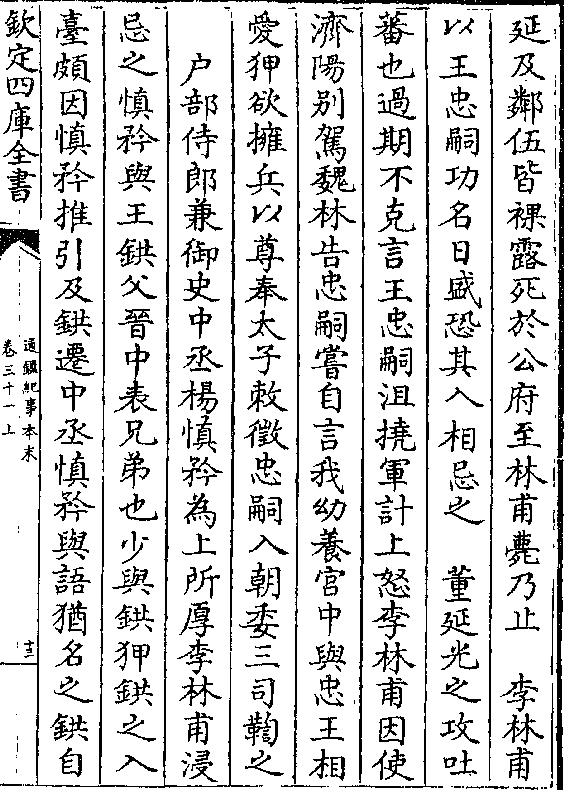 延及鄰伍皆裸露死於公府至林甫薨乃止　李林甫
以王忠嗣功名日盛恐其入相忌之　董延光之攻吐
蕃也過期不克言王忠嗣沮撓軍計上怒李林甫因使
濟陽别駕魏林告忠嗣嘗自言我幼養宫中與忠王相
愛狎欲擁兵以尊奉太子敕徵忠嗣入朝委三司鞫之
户部侍郎兼御史中丞楊慎矜為上所厚李林甫浸
忌之慎矜與王鉷父晉中表兄弟也少與鉷狎鉷之入
臺頗因慎矜推引及鉷遷中丞慎矜與語猶名之鉷自
欽定四庫全書
通鑑紀事本末
卷三十一上
十三